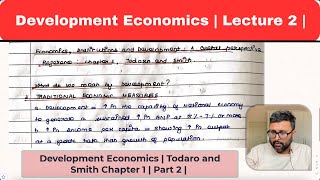 Development Economics | Lecture 2 |
Economics, Institutions and Development: A Global Perspective
Chapter 1, Todaro and Smith.
What do we mean by Development?
TRADITIONAL ECONOMIC MEASURES
a. Development = ↑ in the capacity of national economy
to generate a sustained ↑ in GNP at 5% - 7% or more
b. ↑ in income per capita = showing ↑ in output
at a faster rate than growth of population.
Development Economics | Todaro and
Smith Chapter 1 | Part 2 |